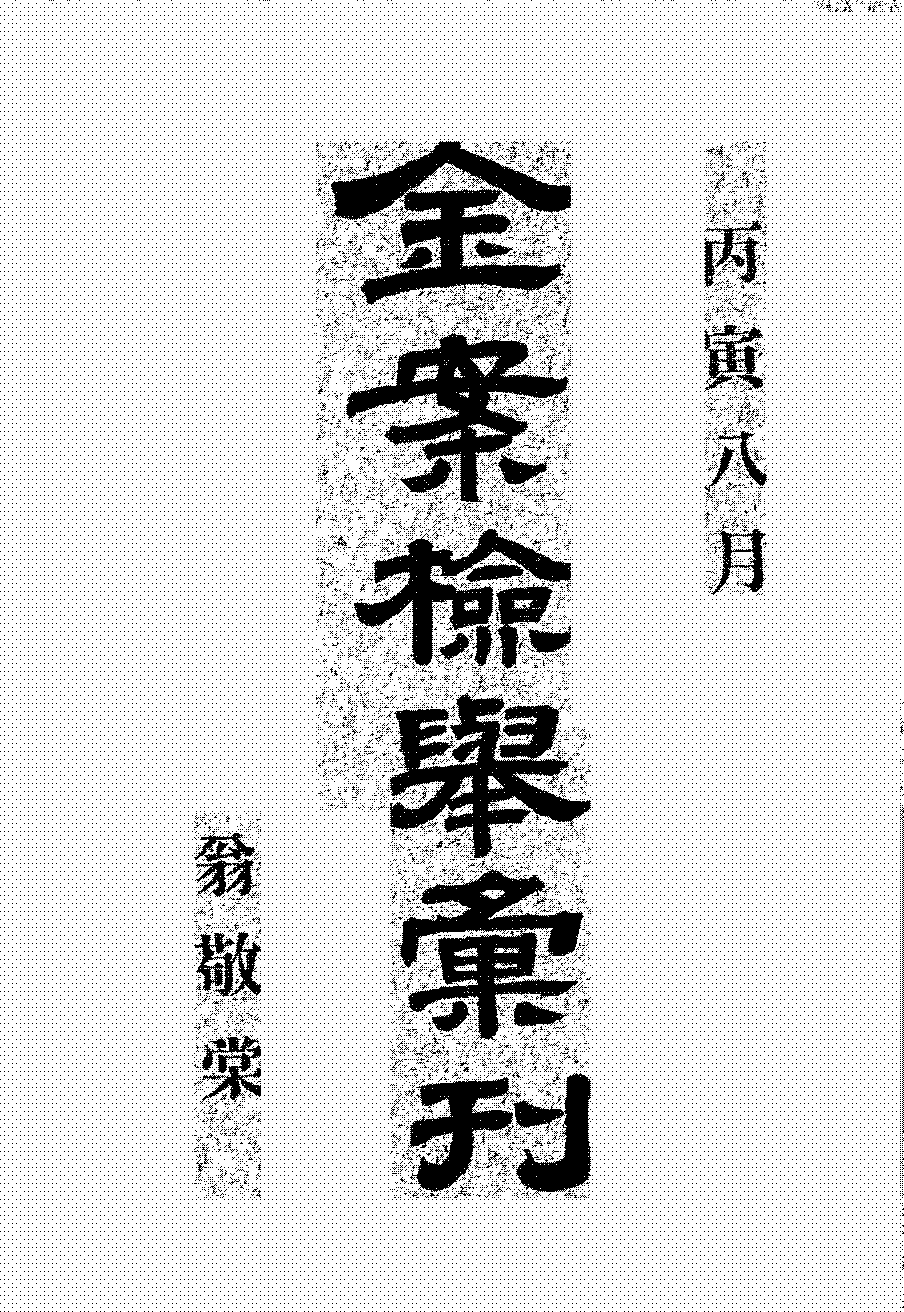 丙寅八月
金案檢舉彙刊
翁敬棠